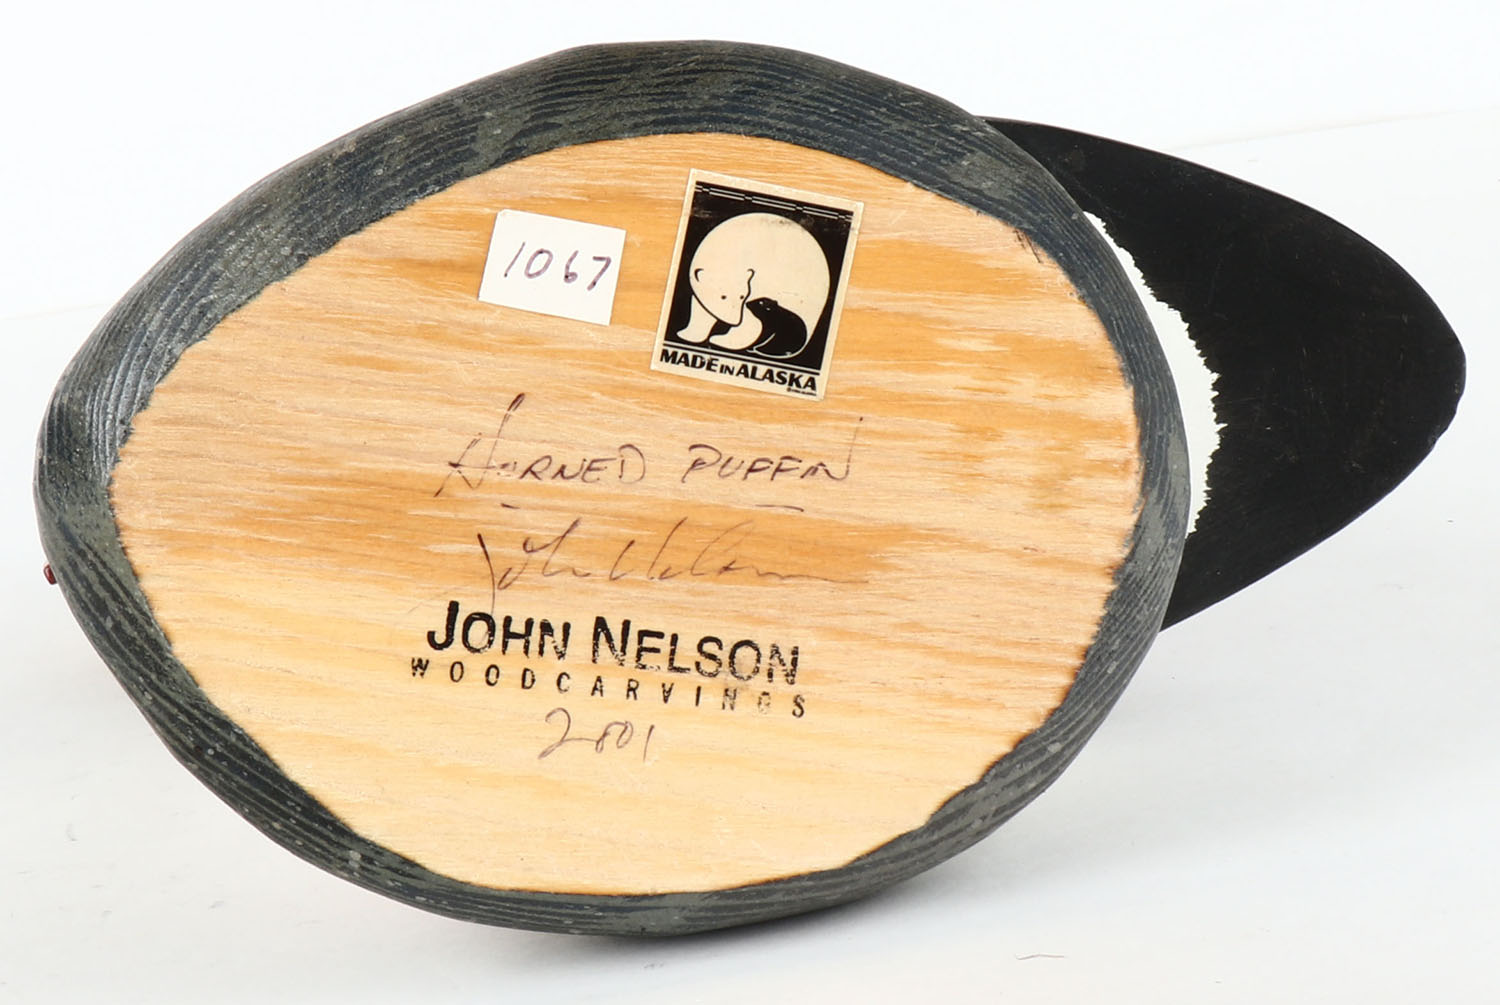 1067
MADE IN ALASKA
HORNED PUFFIN
John Nelson
JOHN NELSON
WOODCARVINGS
2001